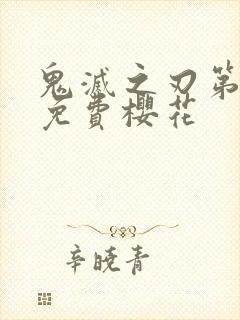 鬼滅之刃第
免費櫻花
辛曉青